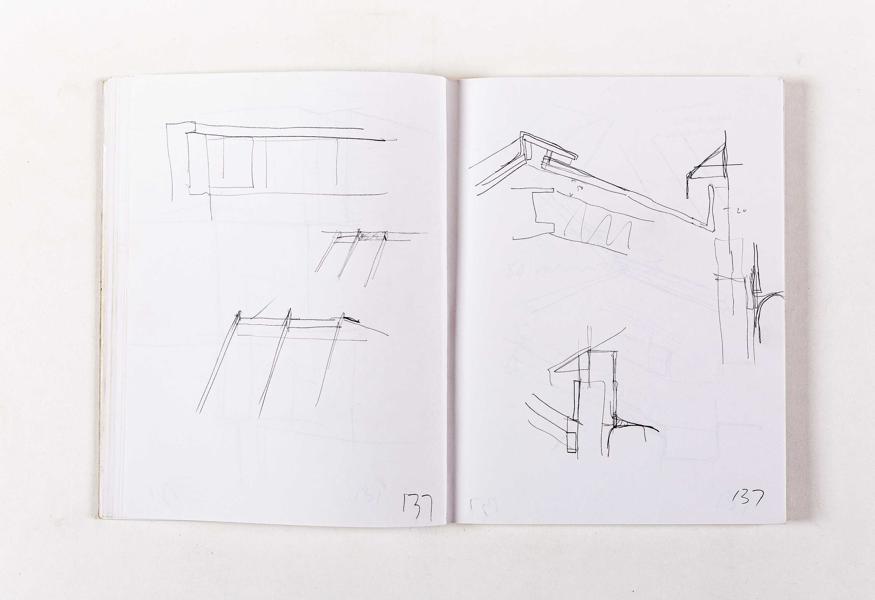 137
20
137